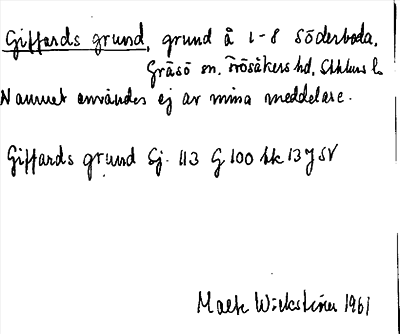 Giffards grund, grund å 1-8 Söderboda,
Gräsö sn, Frösåkers hd, Sthlms l.
Namnet användes ej av mina meddelare.
Giffards grund Sj. 113 G 100 bk 13 y SV
Malte Wickström 1961